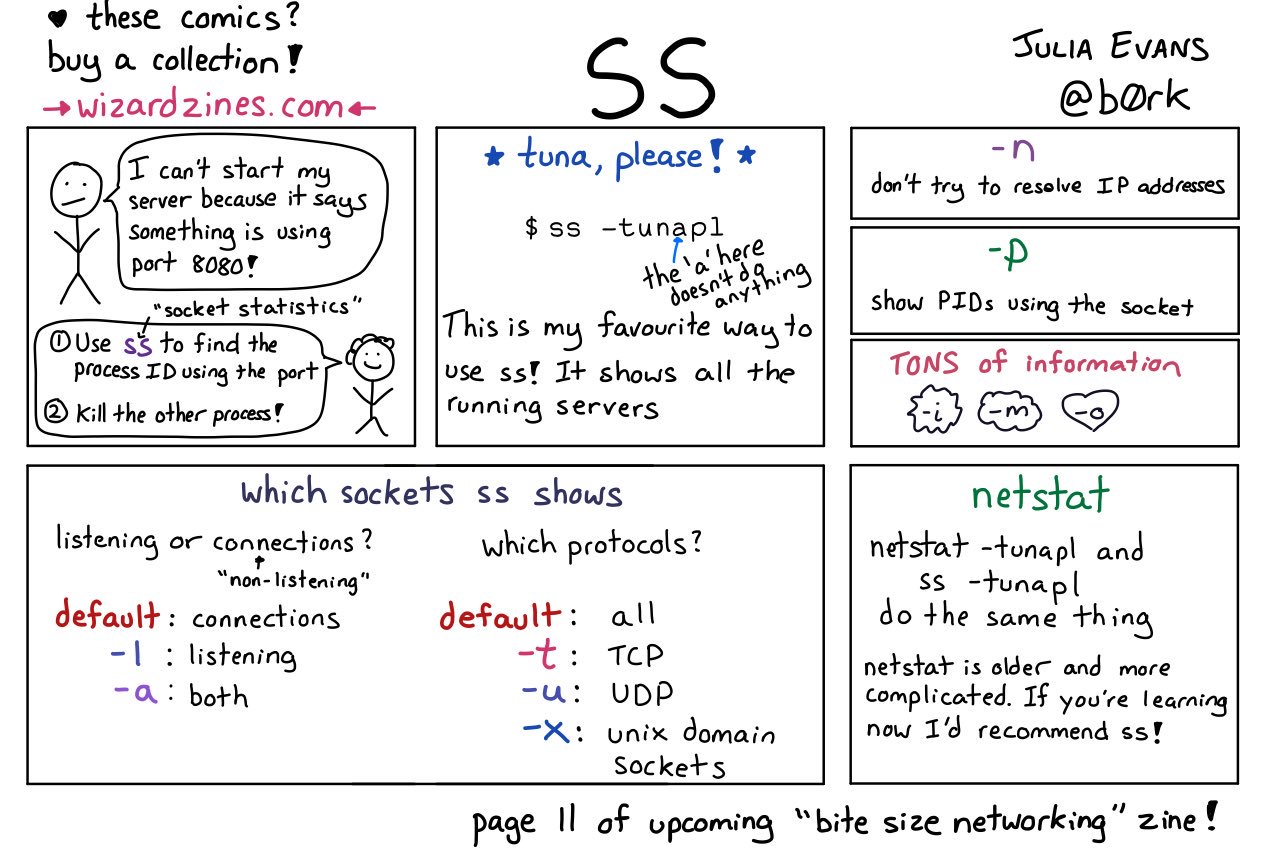 ♥ these comics?
buy a collection!
→ wizardzines.com ←
ss
JULIA EVANS
@b0rk
I can't start my
server because it says
something is using
port 8080!
"socket statistics"
① Use ss to find the
process ID using the port
② Kill the other process!
★ tuna, please! ★
$ ss -tunapl
the 'a' here
doesn't do
anything
This is my favourite way to
use ss! It shows all the
running servers
-n
don't try to resolve IP addresses
-p
show PIDs using the socket
TONS of information
-i -m -o
which sockets ss shows
listening or connections?
"non-listening"
default: connections
-l : listening
-a : both
which protocols?
default: all
-t : TCP
-u : UDP
-x : unix domain
sockets
netstat
netstat -tunapl and
ss -tunapl
do the same thing
netstat is older and more
complicated. If you're learning
now I'd recommend ss!
page 11 of upcoming "bite size networking" zine!